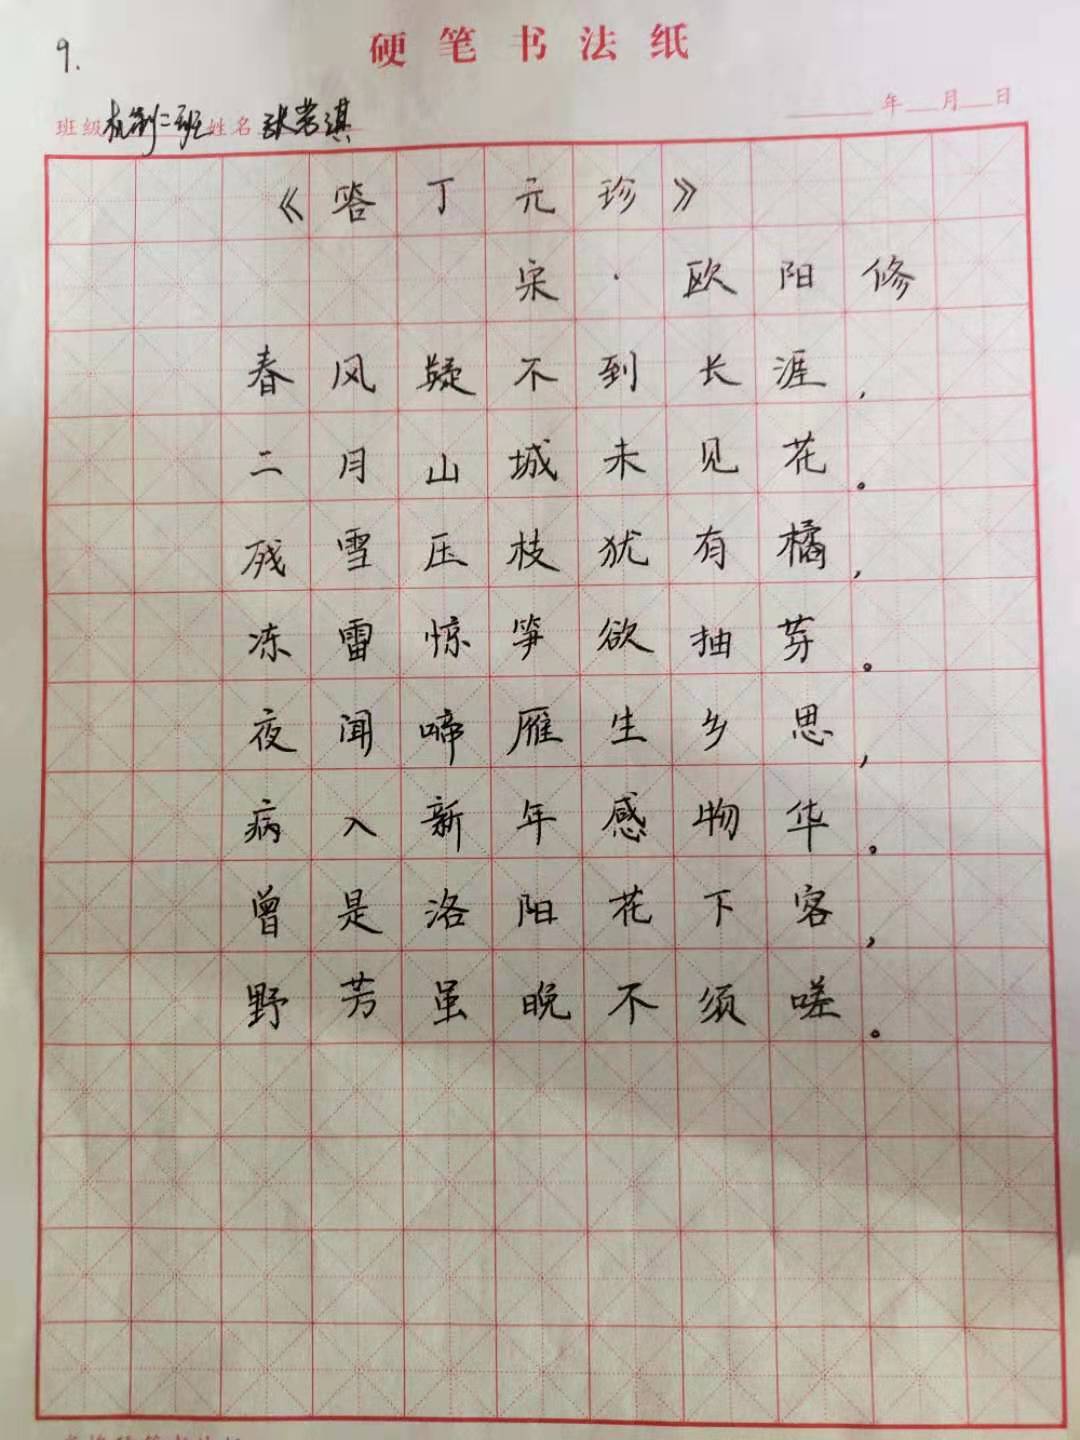 9.
硬笔书法纸
班级 杭制二班 姓名 张芳淇
年 月 日
《答丁元珍》
宋·欧阳修
春风疑不到长涯,
二月山城未见花。
残雪压枝犹有橘,
冻雷惊笋欲抽芽。
夜闻啼雁生乡思,
病入新年感物华。
曾是洛阳花下客,
野芳虽晚不须嗟。